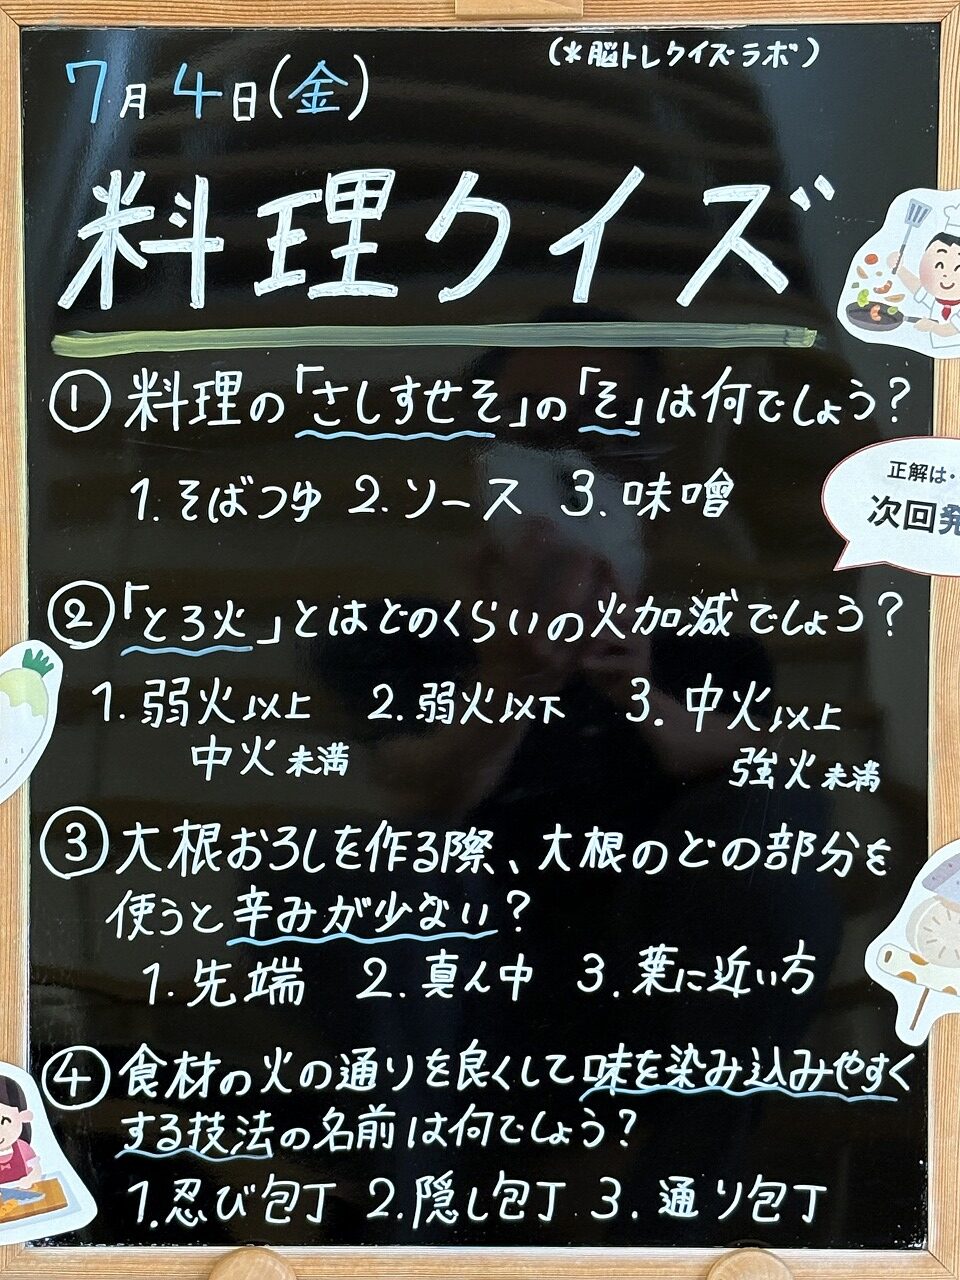 (※脳トレクイズラボ)
7月4日(金)
料理クイズ
① 料理の「さしすせそ」の「そ」は何でしょう?
1. そばつゆ 2. ソース 3. 味噌
正解は・
次回発
② 「とろ火」とはどのくらいの火加減でしょう?
1. 弱火以上 2. 弱火以下 3. 中火以上
中火未満 強火未満
③ 大根おろしを作る際、大根のどの部分を
使うと辛みが少ない?
1. 先端 2. 真ん中 3. 葉に近い方
④ 食材の火の通りを良くして味を染み込みやすく
する技法の名前は何でしょう?
1. 忍び包丁 2. 隠し包丁 3. 通り包丁